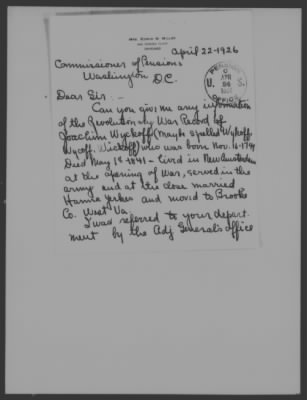 MRS. EDWIN W. MILLER
CHICAGO
April 22-1926
Commissioner of Pensions
Washington D.C.
PENSION
APR
24
1926
OFFICE
U. S.
Dear Sir:-
Can you give me any information
of the Revolutionary War Record of
Joachim Wyckoff (Maybe spelled Wykoff,
Wycoff, Wickoff) who was born Nov. 16-
Died May 18-1841 - lived in New Amsterdam
at the opening of War, served in the
army and at its close married
Hanna Yerkes and moved to Brooke
Co. West Va.
I was referred to your depart-
ment by the Adj General's office